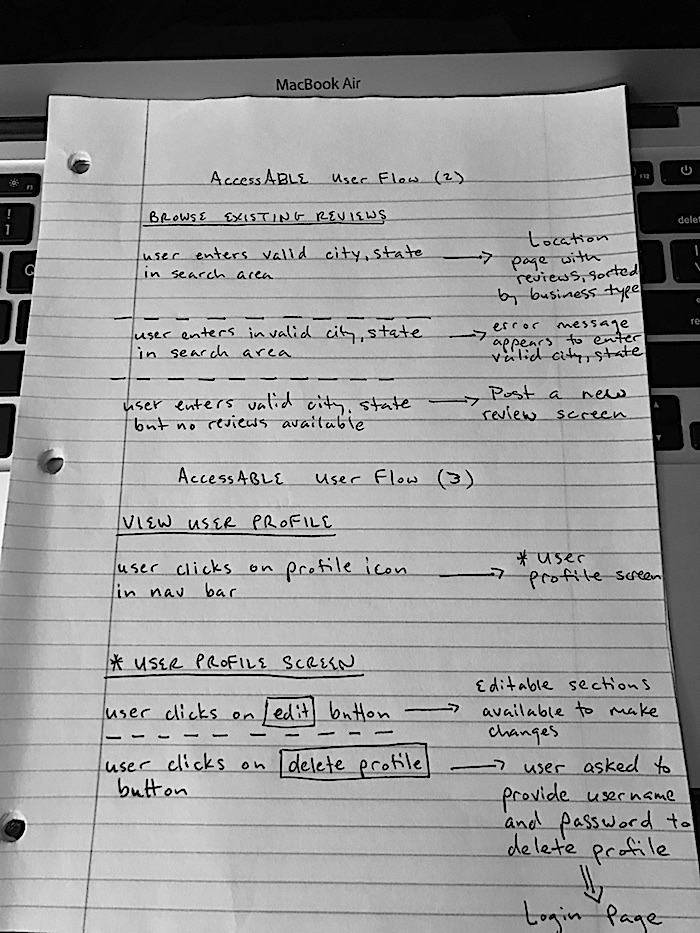 MacBook Air
AccessABLE User Flow (2)
BROWSE EXISTING REVIEWS
user enters valid city, state → Location
in search area page with
reviews, sorted
by business type
user enters invalid city, state → error message
in search area appears to enter
valid city, state
user enters valid city, state → Post a new
but no reviews available review screen
AccessABLE User Flow (3)
VIEW USER PROFILE
user clicks on profile icon → * user
in nav bar profile screen
* USER PROFILE SCREEN
user clicks on edit button → Editable sections
available to make
changes
user clicks on delete profile → user asked to
button provide username
and password to
delete profile
⇓
Login Page
F12
delet
!
1
Q